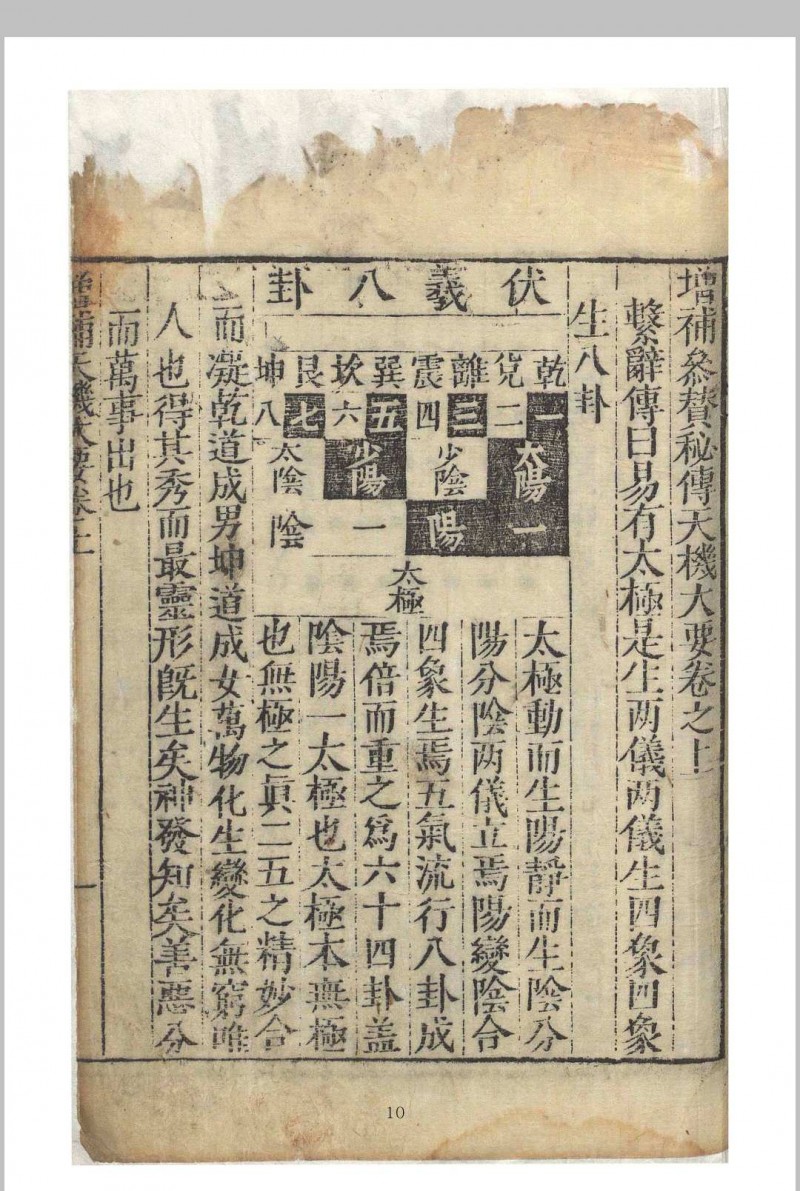 增補參賛秘傳天機大要卷之上
繫辭傳曰易有太極是生两儀两儀生四象四象
生八卦
伏羲八卦
乾兌離震巽坎艮坤
一二三四五六七八
太陽 少陰 少陽 太陰
一陽一陰
太極
太極動而生陽靜而生陰分
陽分陰两儀立焉陽變陰合
四象生焉五氣流行八卦成
焉倍而重之爲六十四卦盖
陰陽一太極也太極本無極
也無極之眞二五之精妙合
而凝乾道成男坤道成女萬物化生變化無窮唯
人也得其秀而最靈形旣生矣神發知矣善惡分
而萬事出也
增補天機大要卷之上
一
10